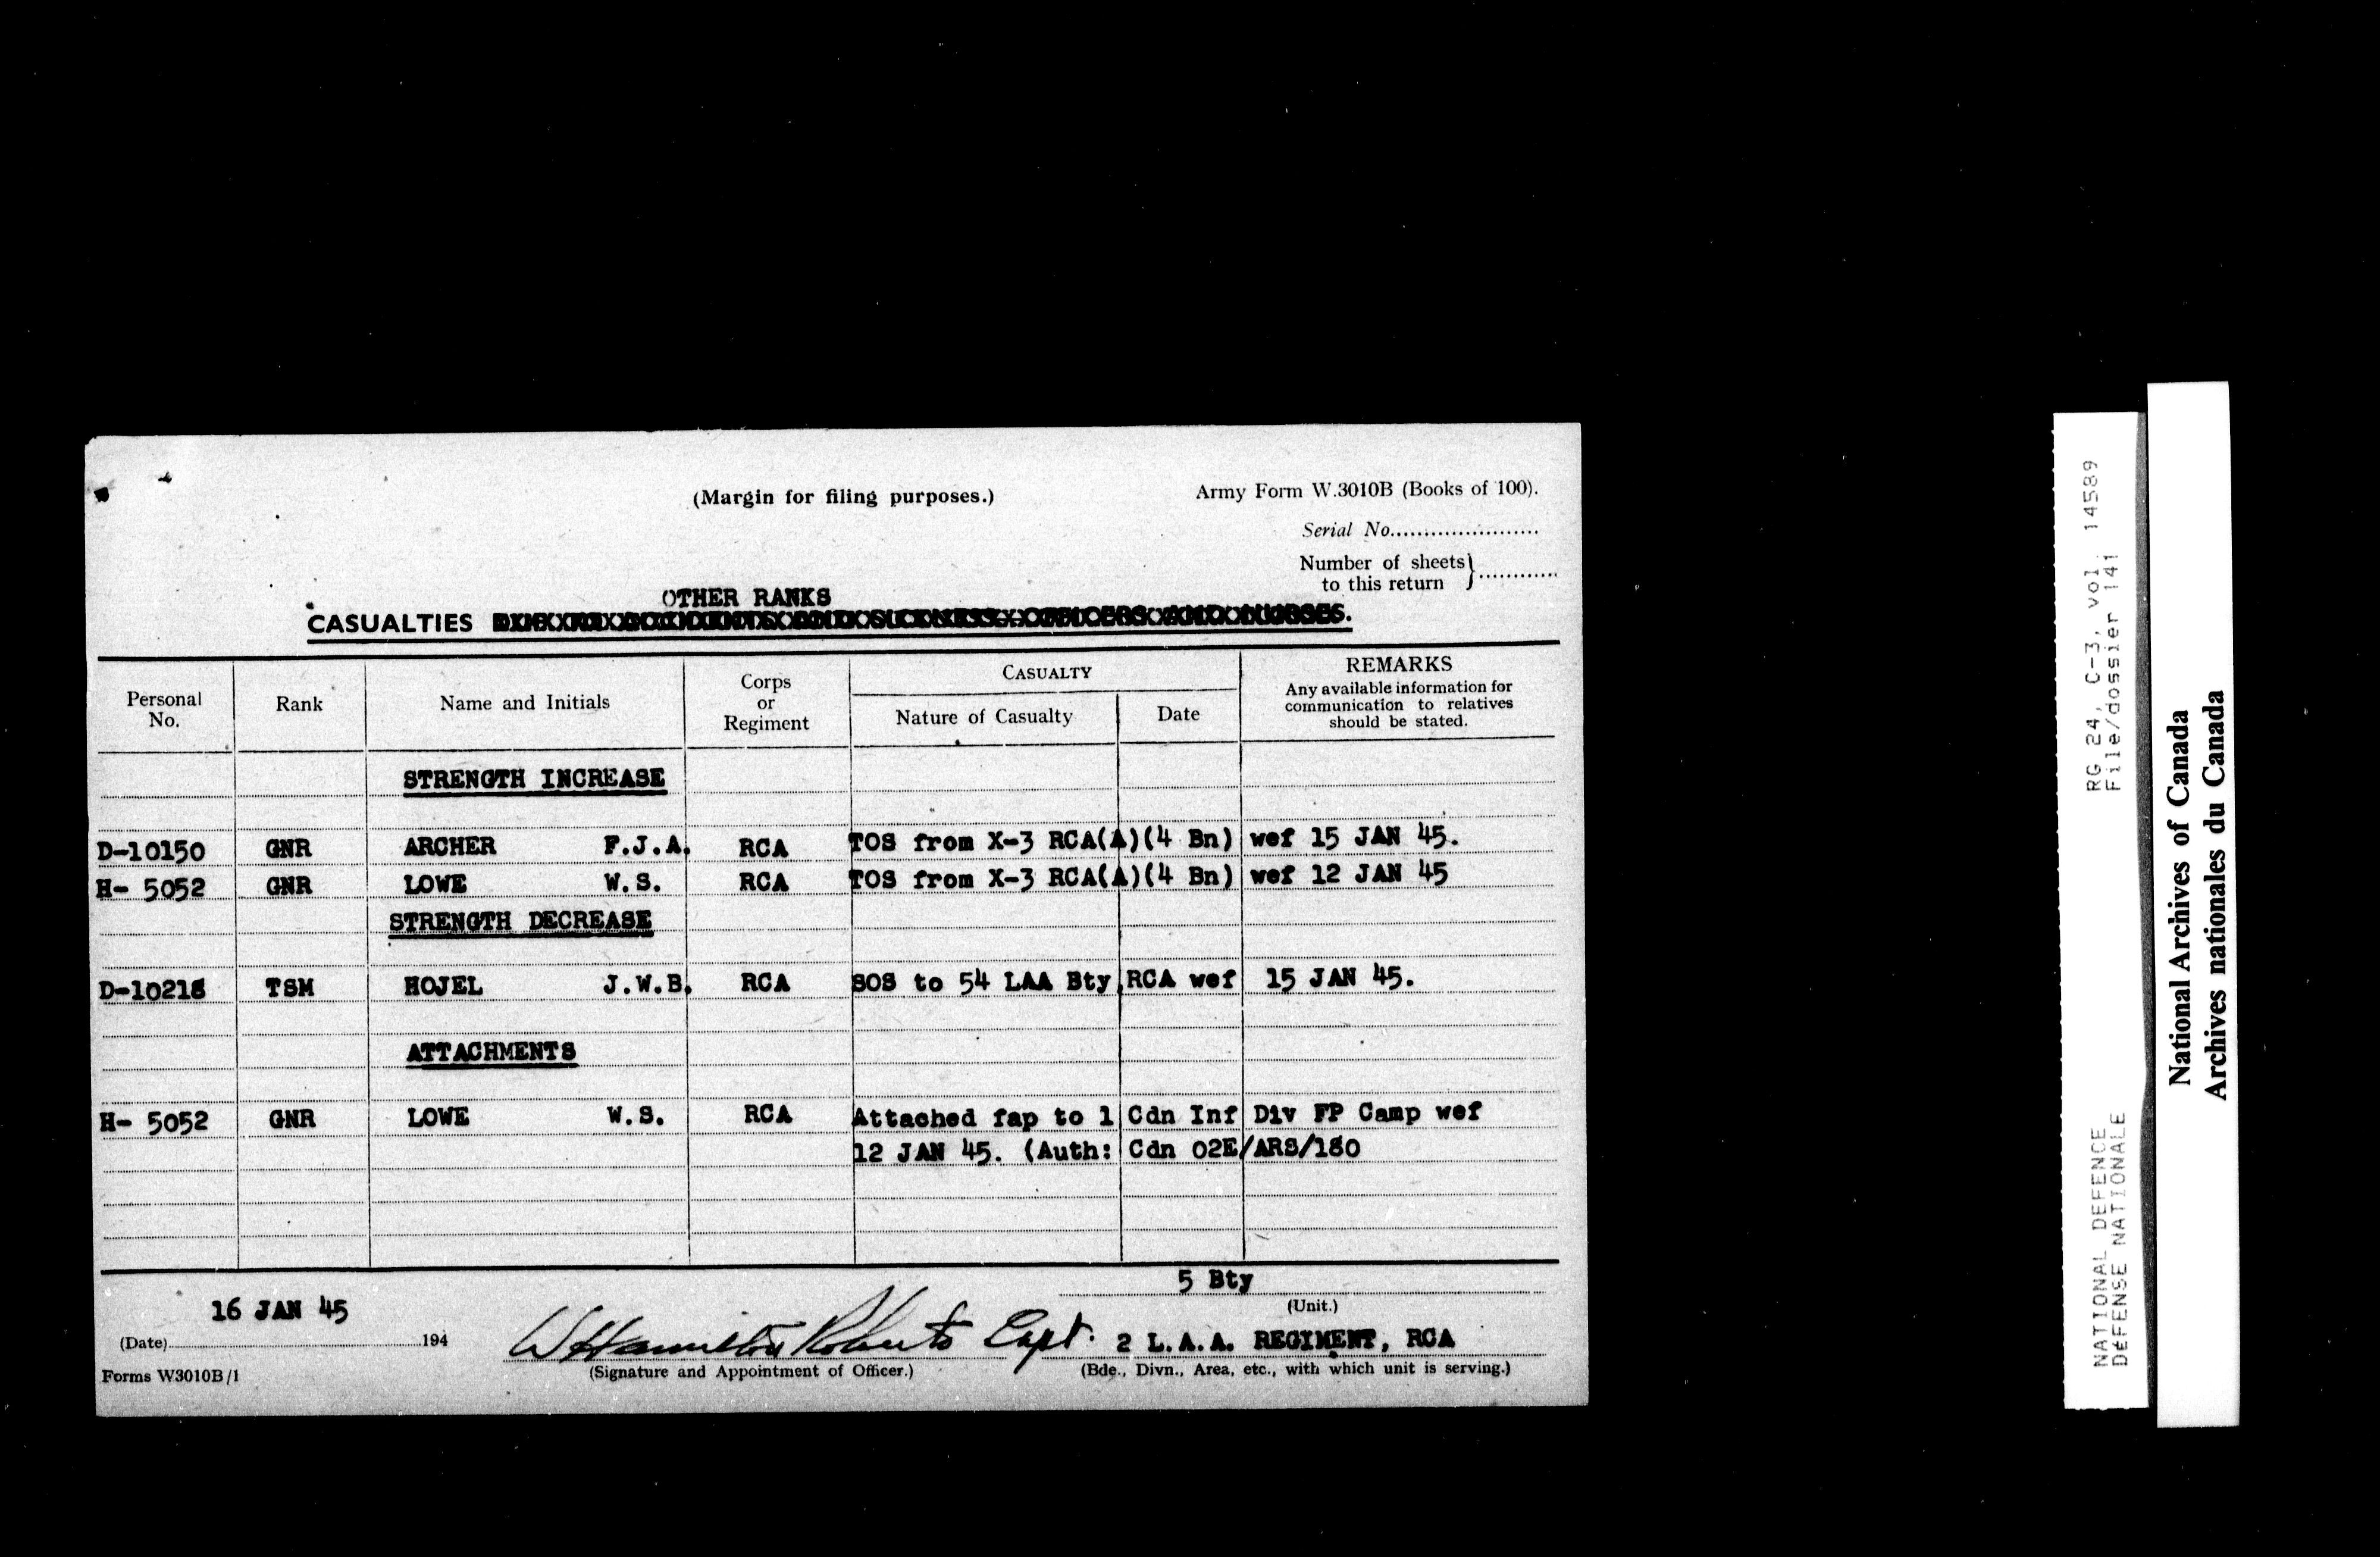 (Margin for filing purposes.)
Army Form W.3010B (Books of 100).
Serial No.
Number of sheets
to this return }
OTHER RANKS
CASUALTIES
Personal No.
Rank
Name and Initials
Corps or Regiment
CASUALTY
Nature of Casualty
Date
REMARKS
Any available information for
communication to relatives
should be stated.
STRENGTH INCREASE
D-10150 GNR ARCHER F.J.A. RCA TOS from X-3 RCA(A)(4 Bn) wef 15 JAN 45.
H- 5052 GNR LOWE W.S. RCA TOS from X-3 RCA(A)(4 Bn) wef 12 JAN 45
STRENGTH DECREASE
D-10218 TSM HOJEL J.W.B. RCA SOS to 54 LAA Bty RCA wef 15 JAN 45.
ATTACHMENTS
H- 5052 GNR LOWE W.S. RCA Attached fap to 1 Cdn Inf Div FP Camp wef
12 JAN 45. (Auth: Cdn 02E/ARS/180
5 Bty
(Unit.)
16 JAN 45
(Date) 194
WHamilton Roberts Capt.
2 L.A.A. REGIMENT, RCA
(Signature and Appointment of Officer.)
(Bde., Divn., Area, etc., with which unit is serving.)
Forms W3010B/1
NATIONAL DEFENCE RG 24, C-3, vol. 14589
DEFENSE NATIONALE File/dossier 141
National Archives of Canada
Archives nationales du Canada